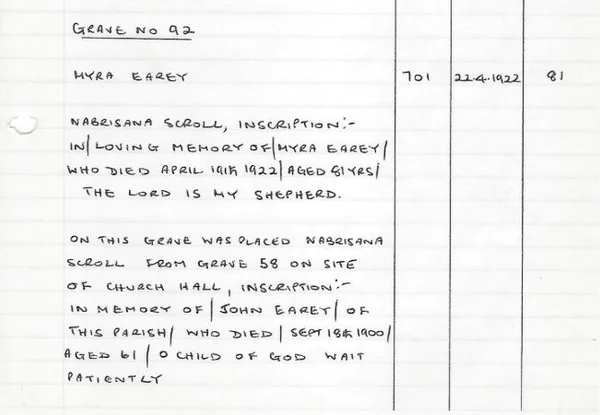 GRAVE NO 92
MYRA EAREY 701 22.4.1922 81
NABRISANA SCROLL, INSCRIPTION:-
IN/ LOVING MEMORY OF/ MYRA EAREY/
WHO DIED APRIL 19th 1922/ AGED 81 YRS/
THE LORD IS MY SHEPHERD.
ON THIS GRAVE WAS PLACED NABRISANA
SCROLL FROM GRAVE 58 ON SITE
OF CHURCH HALL, INSCRIPTION:-
IN MEMORY OF / JOHN EAREY/ OF
THIS PARISH/ WHO DIED / SEPT 18th 1900/
AGED 61 / O CHILD OF GOD WAIT
PATIENTLY